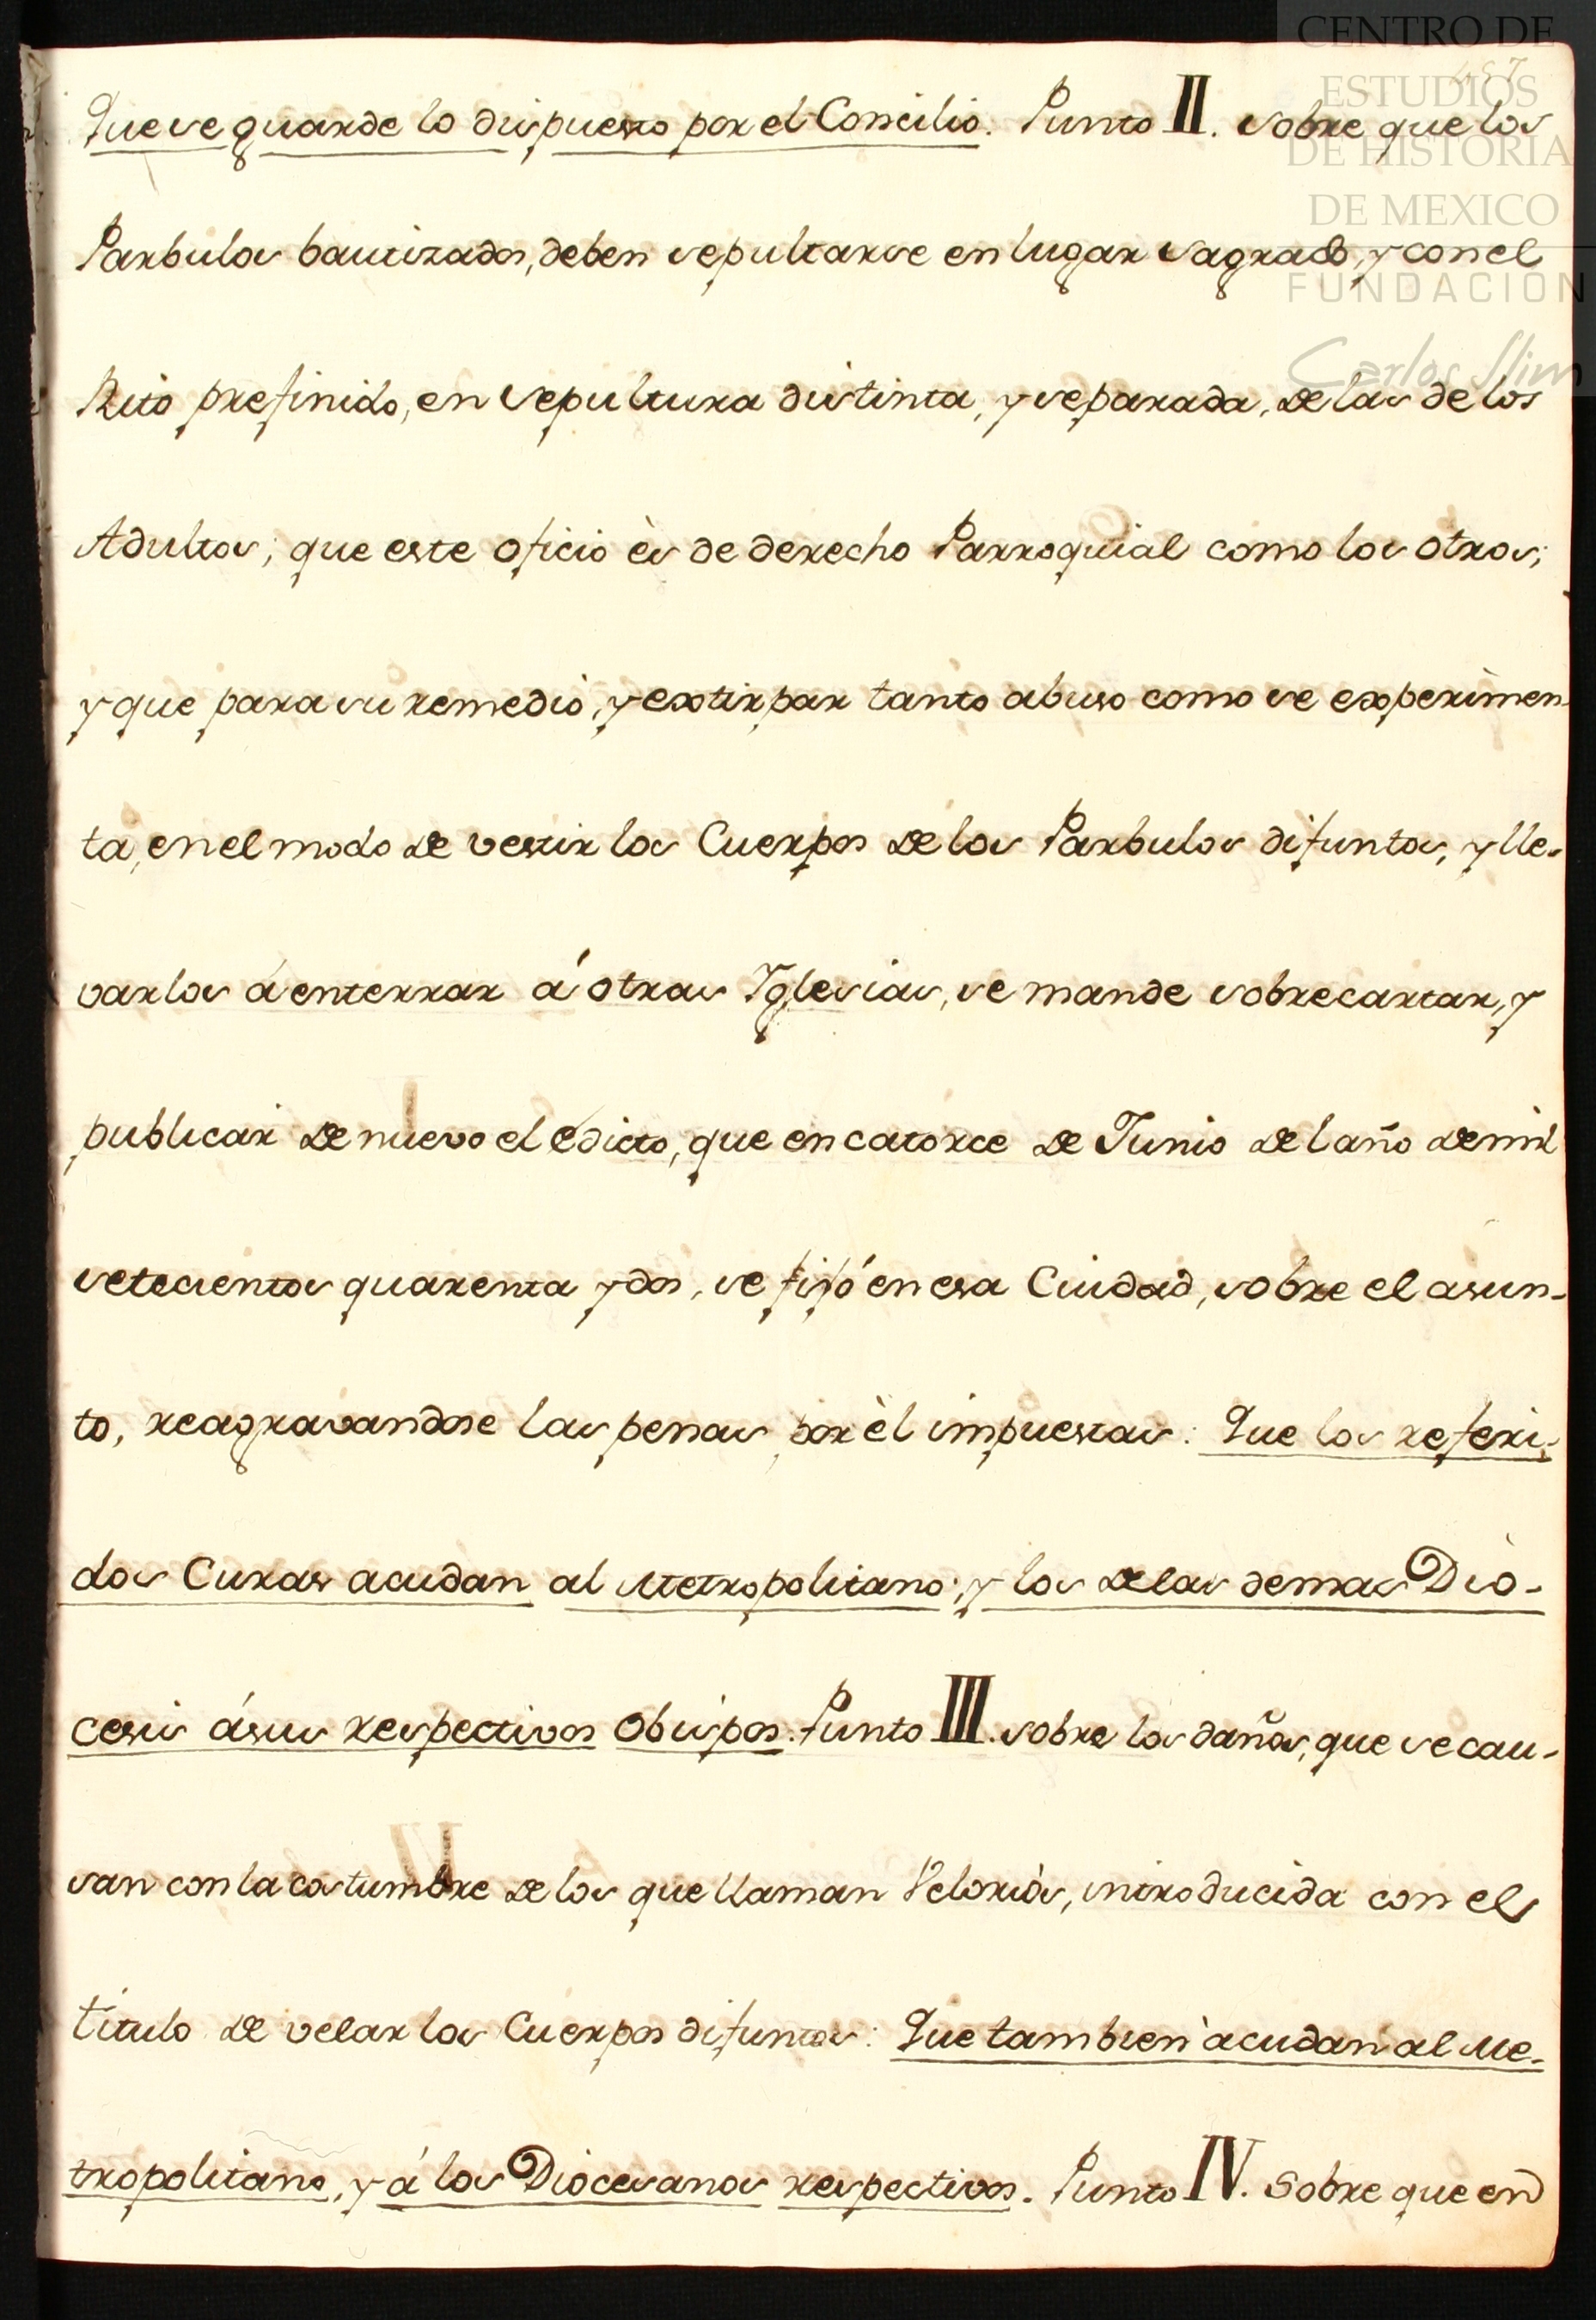 CENTRO DE
ESTUDIOS
DE HISTORIA
DE MEXICO
FUNDACIÓN
Carlos Slim
Que se guarde lo dispuesto por el Concilio. Punto II. sobre que los
Parbulos bautizados, deben sepultarse en lugar sagrado, y con el
Rito prefinido, en sepultura distinta, y separada, de las de los
Adultos; que este oficio ès de derecho Parroquial como los otros;
y que para su remedio, y extirpar tanto abuso como se experimen-
ta, en el modo de vestir los Cuerpos de los Parbulos difuntos, y lle-
varlos á enterrar á otras Yglesias, se mande sobrecartar, y
publicar de nuevo el edicto, que en catorce de Junio del año de mil
setecientos quarenta y dos, se fijó en esa Ciudad, sobre el asun-
to, reagravandose las penas por èl impuestas: Que los referi-
dos Curas acudan al Metropolitano; y los de las demas Dio-
cesis á sus respectivos Obispos. Punto III. sobre los daños, que se cau-
san con la costumbre de los que llaman Velorios, introducida con el
titulo de velar los Cuerpos difuntos: Que tambien acudan al Me-
tropolitano, y á los Diocesanos respectivos. Punto IV. Sobre que en